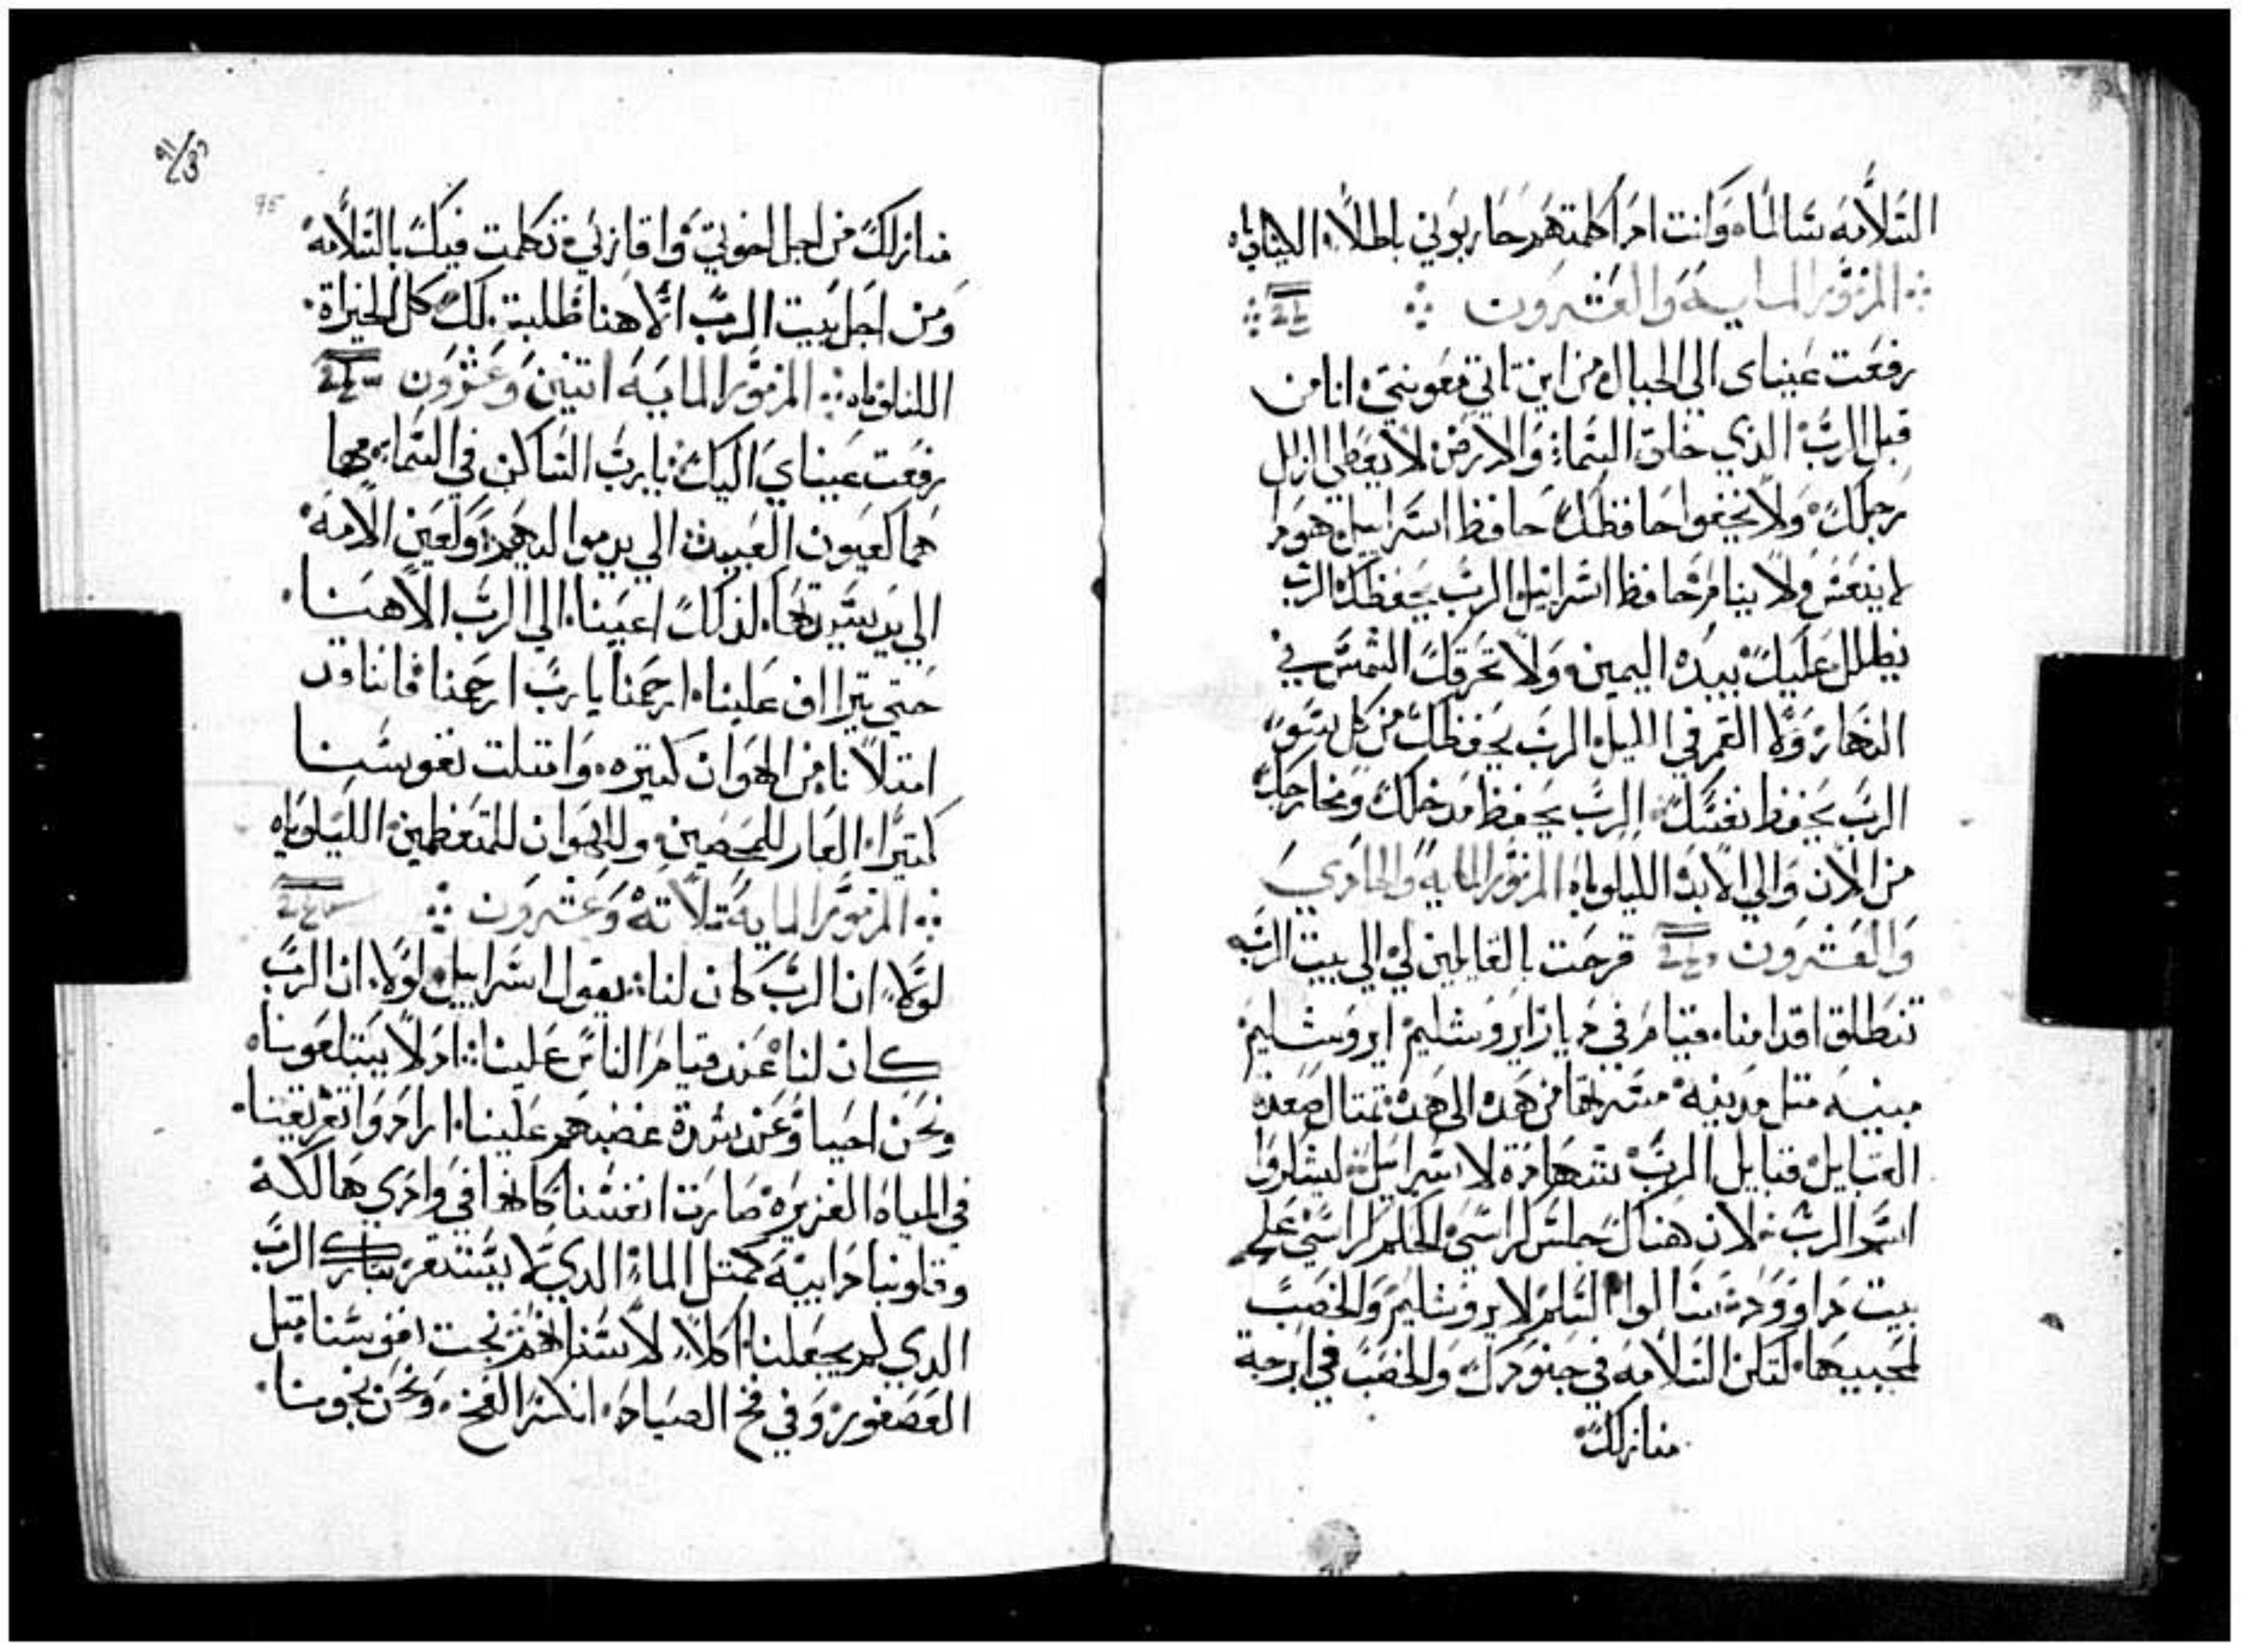 السَّلاَمَه سَالماً، وَانت ادَا كلمتهَم حَاربوَني باطلاً، الليلوياه
المزمَوُر المايه وَالعَشرون
رفعَت عَيناى الي الجبال من اين تاتي مَعَونتيَ، انا من
قبل الرَبَّ الذي خلق السَماء وَالارضَ لاَ يعَطي الزلل
رجلكَ، وَلاَ يخفوا حَافظكَ حَافظ اسَراييل، هوَدا
لا ينعَسَ وَلاَ ينامَ حَافظ اسَراييل الربَ يحَفظكَ الربَ
يظلل عَليكَ بيده اليمين، وَلاَ تحَرقكَ الشمسَ في
النهَار وَلا القمر في الليل، الربَ يحَفظكَ من كل سَوَ
الربَ يحَفظ نفسَكَ، الربَ يحَفظ مَدخلكَ وَمَخارجكَ
من الاَن وَالي الابد الليلوياه المزمَوُر المايه وَالحَادي
وَالعَشروَن فرحَت بالقايلين لي الي بيت الربَ
تنطلق اقدامنا، قيام في ديار ايروَشليم ايروَشليم
مبنيه متل مَدينه مشتركهَا من هَده الي هَده تمتال صعَدة
القبايل، قبايل الربَ شهَادَة لاسَراييل، ليشكروَا
اسَم الربَ، لان هناكَ جلسَ كراسَي الحَكم كراسَي عَلي
بيت دَاووَد، سَالوا السَلم لايروَشليم وَالخصبَ
لمحبيهَا، لتكن السَلاَمَه في جنوَدكَ وَالخصبَ في ابرجة
منازلكَ
منازلكَ من اجل اخوتي وَاقاربي، تكلمت فيكَ بالسَلاَمهَ
وَمن اجل بَيت الربَ الاَهنا طلبت لكَ كل الخيراة
الليلوياه المزموُر المايَه اتنين وَعَشروَن
رفعَت عَيناي اليكَ يا ربَ السَاكن في السَما،
هَما كعيون العَبيد الي يد مواليهَم، وَكعَين الاَمه
الي يد سَيدتهَا، لدلكَ اعَيننا، الي الربَ الاَهنا
حَتي يتراَاف عَلينا، ارحَمنا ياربَ ارحَمنا فاننا قد
امتلاَنا من الهَوَان كتيره، وَامتلت نفوسَنا
كتيراً، العَار للمخصبين، وللهَوان للمتعَظمين الليلوياه
المزموَُر المايه تلاَتهَ وَعَشروَن
لوَلا ان الربَ كان لنا، يقول اسَراييل، لوَلا ان الربَ
كان لنا عَند قيام الناسَ عَلينا، ادَ لاَ يبتلعَونا
وَنحَن احَيا، وَعَند شدة غضبهَم عَلينا، ارادَوا تغريقنا
في المياه الغزيره صَارت انفسَنا كانهَا في وَادَي هَالكة
وقلوبنا دَاييه كمتل الماء الدي لاَ يستقر، تبارك الربَ
الدي لم يجعَلنا اكلاً لاسَنانهم، نجت نفوسَنا متل
العَصَفور، وَفي فخ الصيادَ، انكسَر الفخ، وَنحَن نجونا